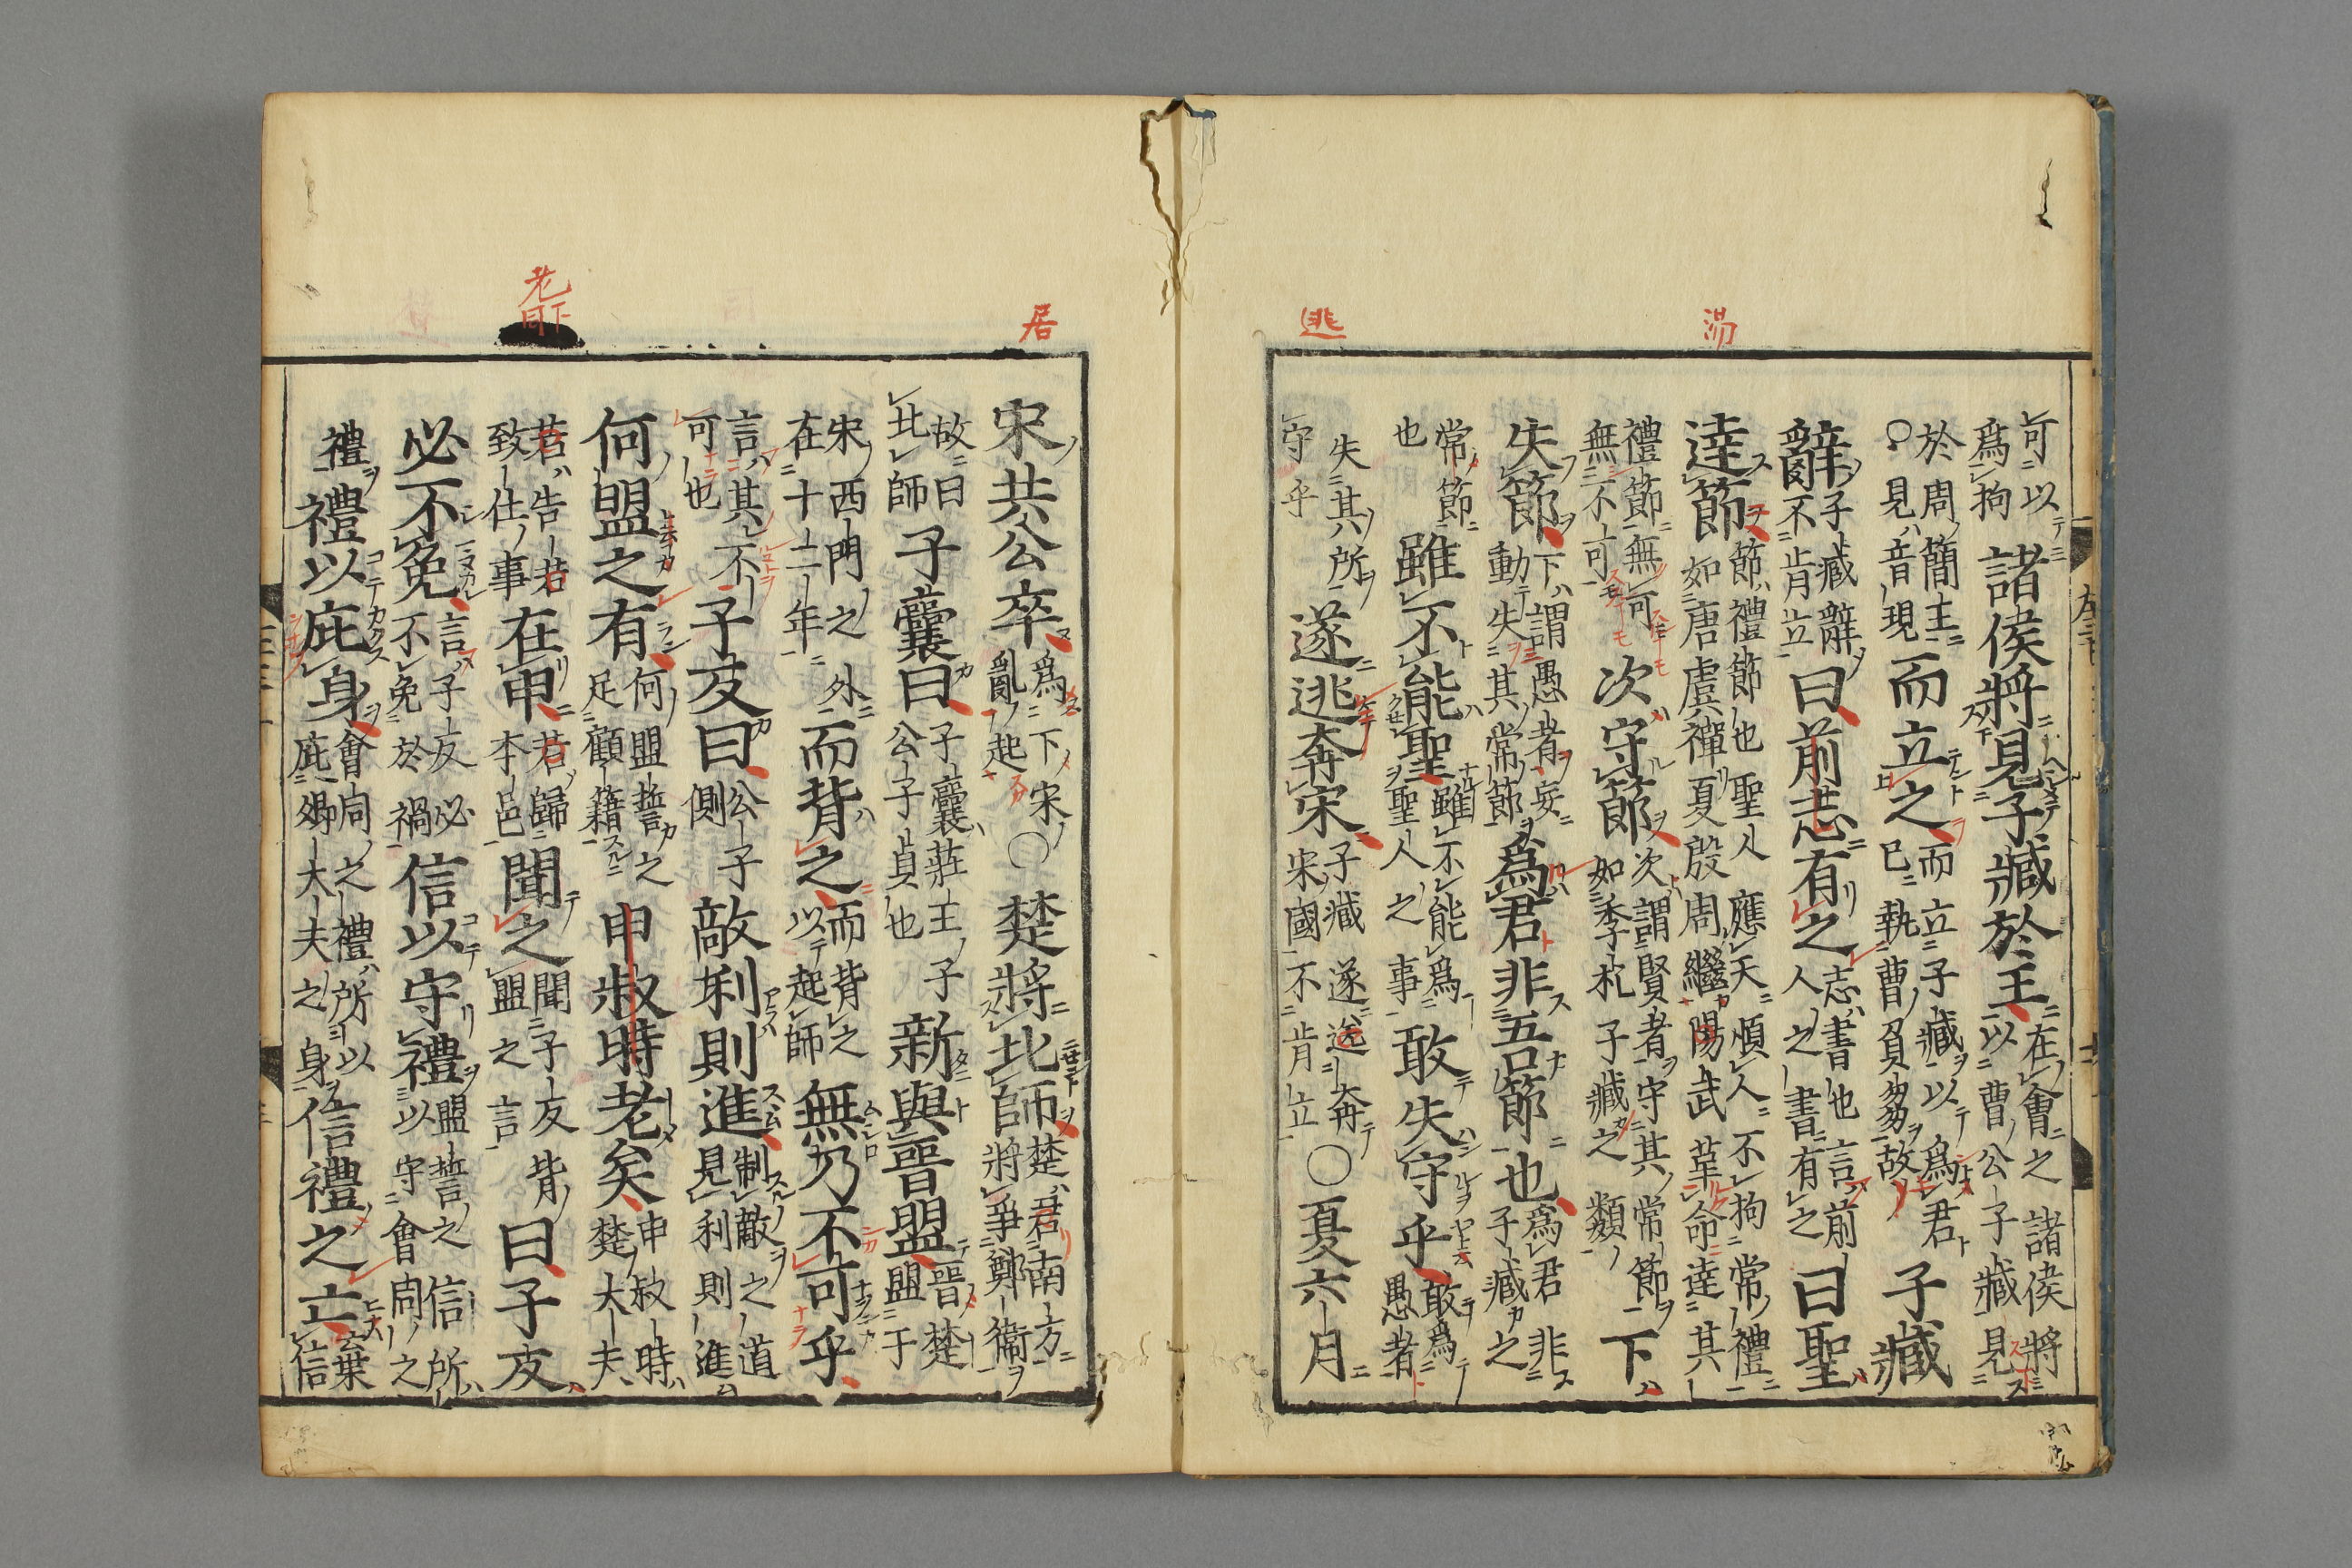 湯
逃
可以
爲拘
諸侯將見子臧於王
在會之諸侯將
以曹公子臧見
於周簡王
見音現
而立之
而立子臧以爲君
已執曹負芻故
子臧
辭
子臧辭
不肯立
曰前志有之
志書也言前
人之書有之
曰聖
達節
節禮節也聖人應天順人不拘常禮
如唐虞禪夏殷周繼陽武革命達其
禮節無可
無不可
次守節
次謂賢者守其常節
如季札子臧之類
下
失節
下謂愚者妄
動失其常節
爲君非吾節也
爲君非
子臧之
常節
也
雖不能聖
雖不能爲
聖人之事
敢失守乎
敢爲
愚者
失其所
守乎
遂逃奔宋
子臧遂逃奔
宋國不肯立
○夏六月
居
老下同
宋共公卒
爲下宋
亂起
○楚將北師
楚君南方
將爭鄭衞
故曰
北師
子囊曰
子囊莊王子
公子貞也
新與晉盟
晉楚
盟于
宋西門之外
在十二年
而背之
而背之
以起師
無乃不可乎
言其不
可也
子反曰
公子
側
敵利則進
制敵之道
見利則進
何盟之有
何盟誓之
足顧籍
申叔時老矣
申叔時
楚大夫
若告若
致仕事
在申
若歸
本邑
聞之
聞子反背
盟之言
曰子反
必不免
言子反必
不免於禍
信以守禮
盟誓之信所
以守會同之
禮
禮以庇身
會同之禮所以
庇卿大夫之身
信禮之亡
棄
信